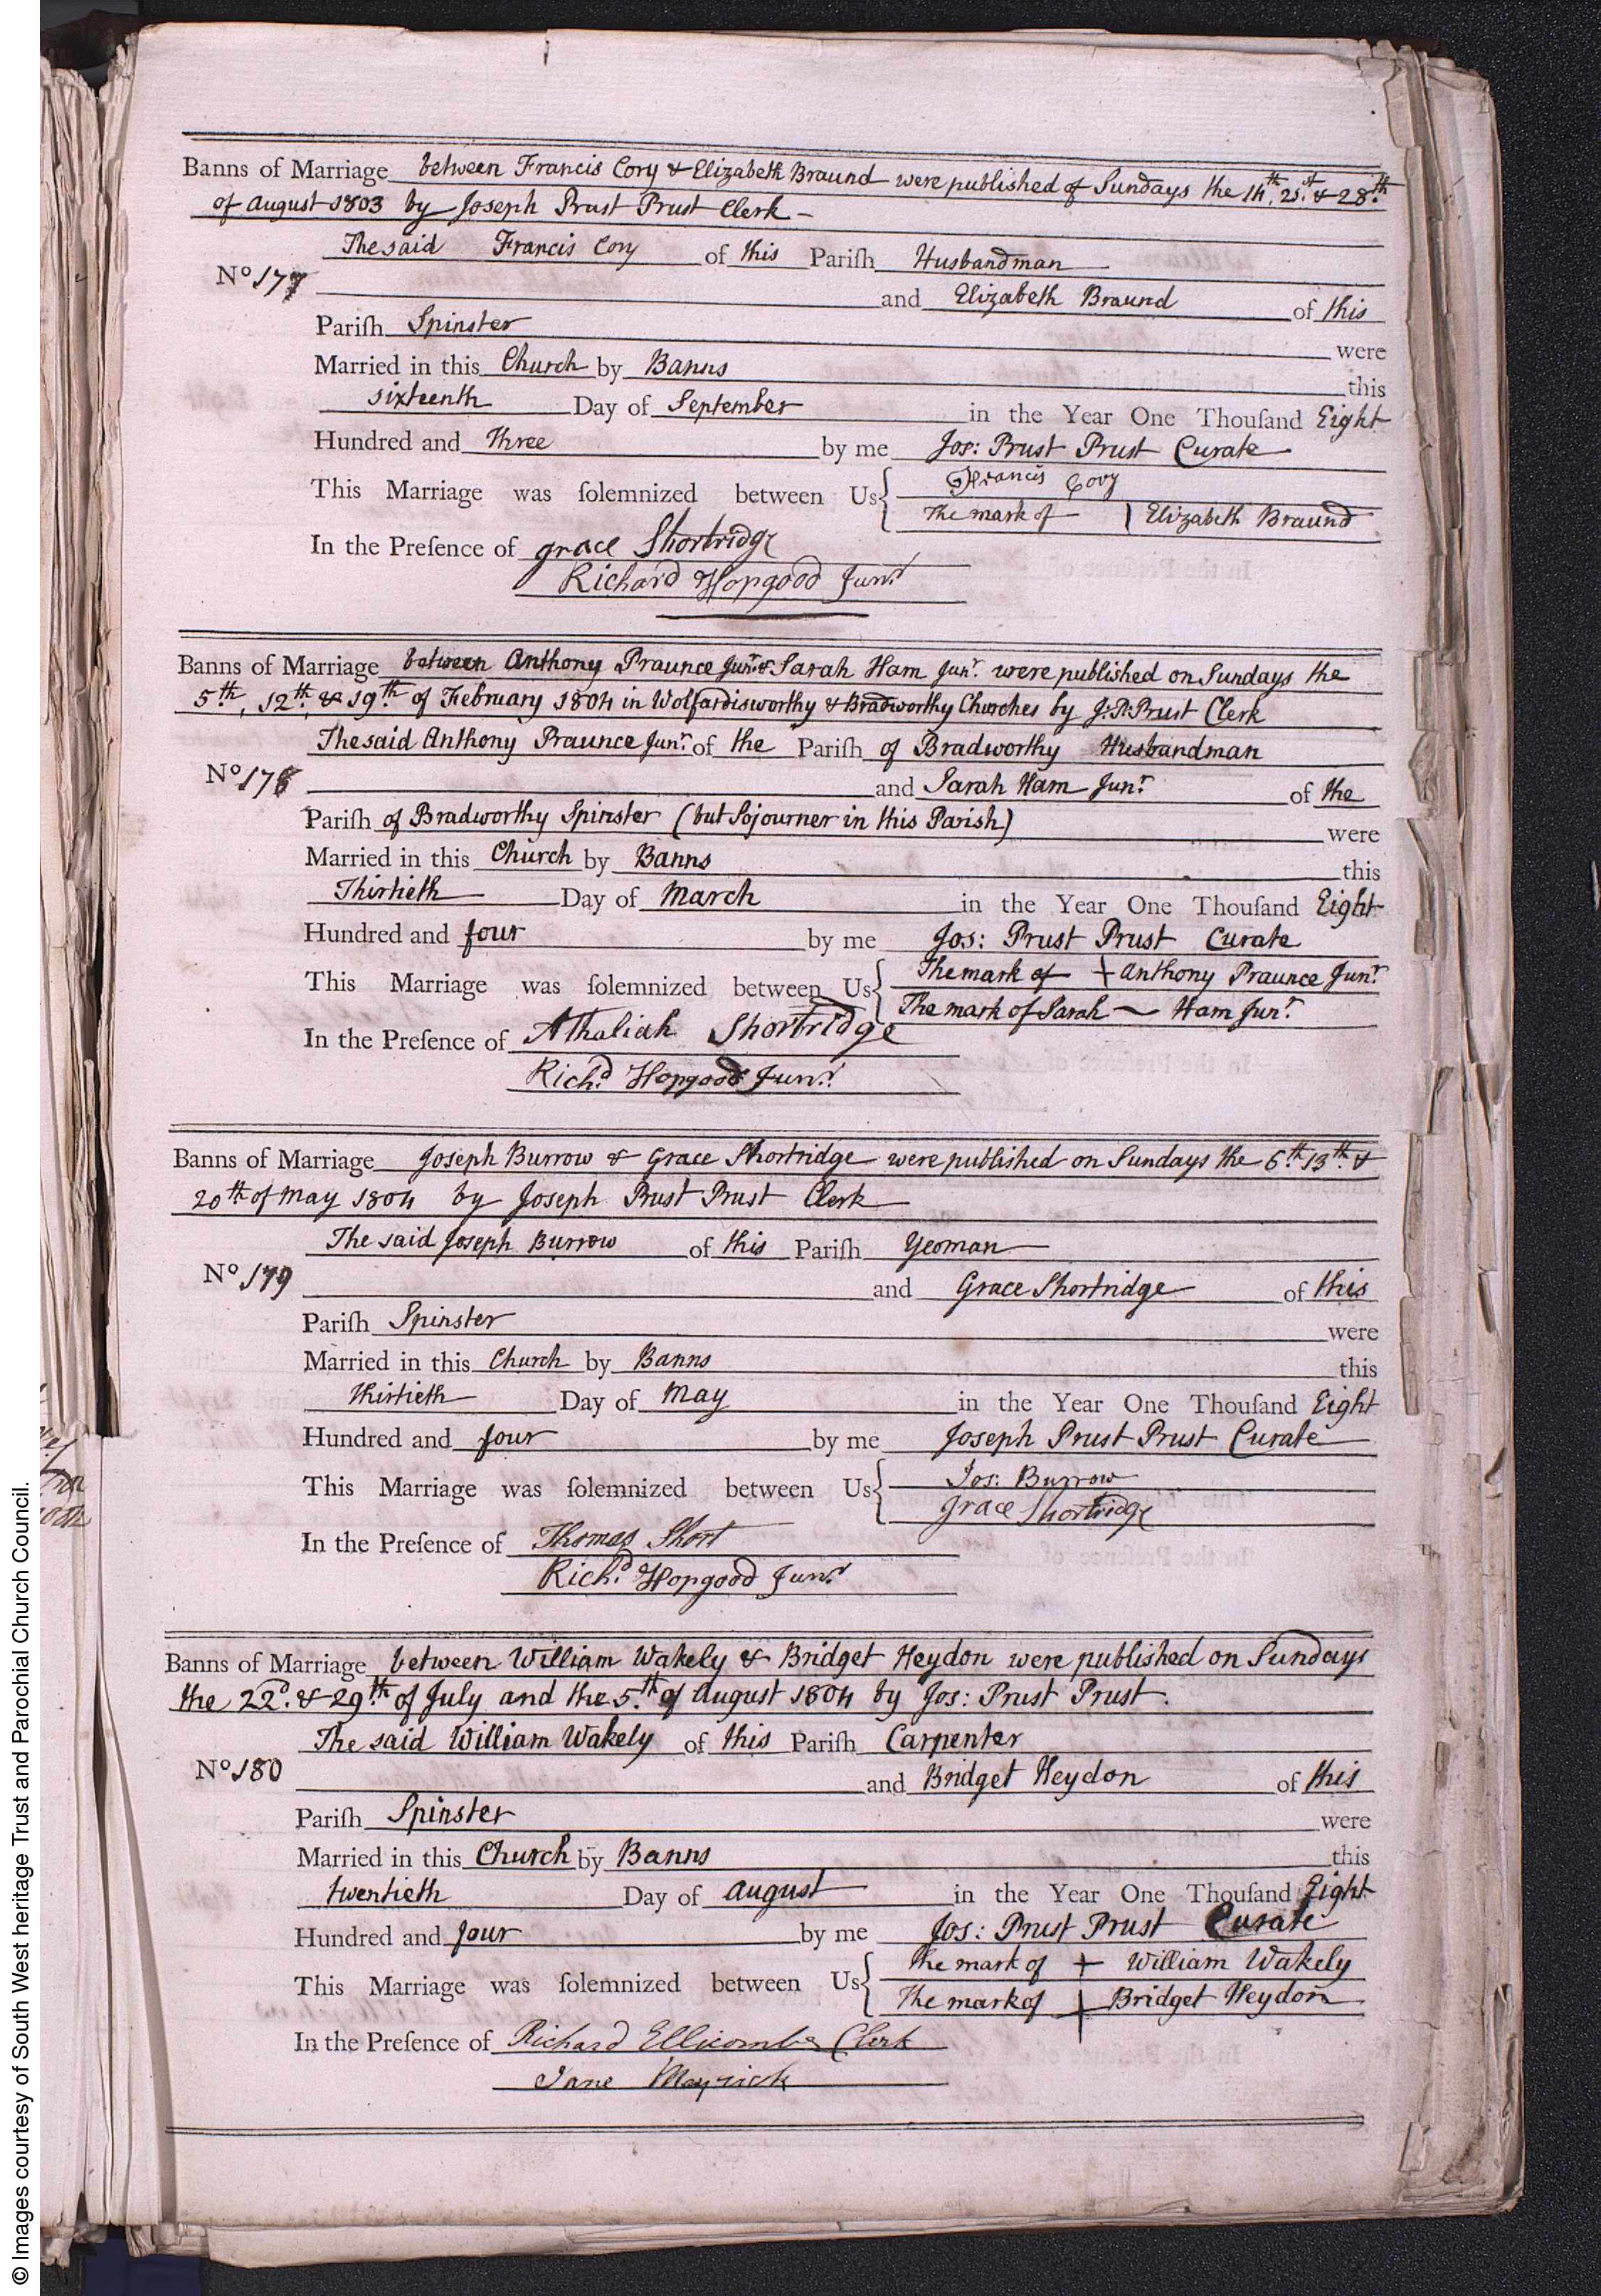 Banns of Marriage between Francis Cory & Elizabeth Braund were published of Sundays the 14th, 21st & 28th
of August 1803 by Joseph Prust Prust Clerk -
The said Francis Cory of this Pariſh Husbandman
No 177
and Elizabeth Braund of this
Pariſh Spinster were
Married in this Church by Banns this
sixteenth Day of September in the Year One Thouſand Eight
Hundred and Three by me Jos: Prust Prust Curate
This Marriage was ſolemnized between Us { Francis Cory
The mark of | Elizabeth Braund
In the Preſence of grace Shortridge
Richard Hopgood Junr
Banns of Marriage between Anthony Praunce Junr. & Sarah Ham Junr. were published on Sundays the
5th, 12th, & 19th of February 1804 in Wolfardisworthy & Bradworthy Churches by J: P: Prust Clerk
The said Anthony Praunce Junr. of the Pariſh of Bradworthy Husbandman
No 178
and Sarah Ham Junr. of the
Pariſh of Bradworthy Spinster (but Sojourner in this Parish) were
Married in this Church by Banns this
Thirtieth Day of March in the Year One Thouſand Eight
Hundred and four by me Jos: Prust Prust Curate
This Marriage was ſolemnized between Us { The mark of + Anthony Praunce Junr.
The mark of Sarah ~ Ham Junr.
In the Preſence of Athaliah Shortridge
Richd. Hopgood Junr.
Banns of Marriage Joseph Burrow & Grace Shortridge were published on Sundays the 6th. 13th. &
20th of May 1804 by Joseph Prust Prust Clerk
The said Joseph Burrow of this Pariſh Yeoman
No 179
and Grace Shortridge of this
Pariſh Spinster were
Married in this Church by Banns this
thirtieth Day of May in the Year One Thouſand Eight
Hundred and four by me Joseph Prust Prust Curate
This Marriage was ſolemnized between Us { Jos: Burrow
grace Shortridge
In the Preſence of Thomas Short
Richd. Hopgood Junr.
Banns of Marriage between William Wakely & Bridget Heydon were published on Sundays
the 22d. & 29th. of July and the 5th. of August 1804 by Jos: Prust Prust.
The said William Wakely of this Pariſh Carpenter
No 180
and Bridget Heydon of this
Pariſh Spinster were
Married in this Church by Banns this
twentieth Day of August in the Year One Thouſand Eight
Hundred and four by me Jos: Prust Prust Curate
This Marriage was ſolemnized between Us { The mark of + William Wakely
The mark of + Bridget Heydon
In the Preſence of Richard Ellicombe Clerk
Jane Mayrick
© Images courtesy of South West heritage Trust and Parochial Church Council.